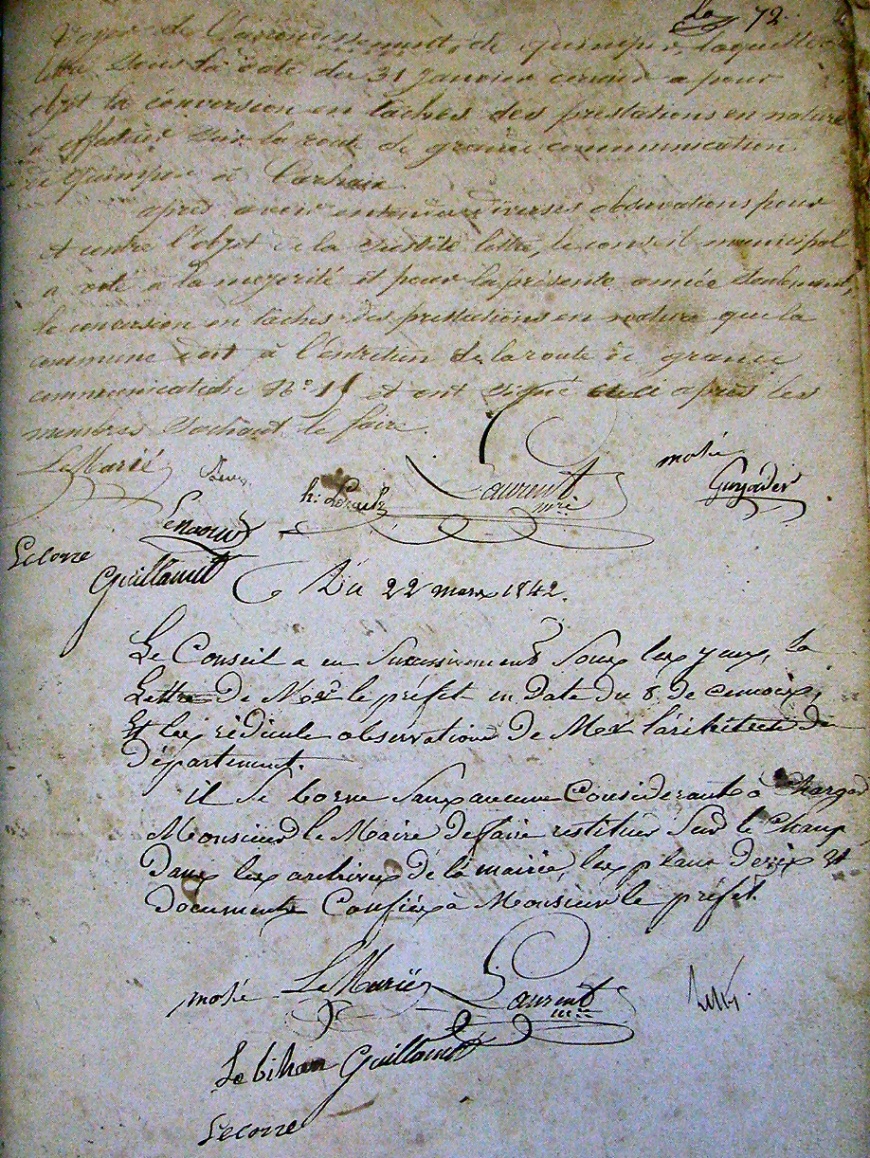 72.
Voyer de l'arrondissement de quimper, laquelle
lettre sous la date du 31 janvier dernier a pour
objet la conversion en tâches des prestations en nature
à effectuer sur la route de grande communication
de quimper à Carhaix
après avoir entendu diverses observations pour
et contre l'objet de la susdite lettre, le conseil municipal
a voté à la majorité et pour la présente année seulement,
la conversion en tâches des prestations en nature que la
commune doit à l'entretien de la route de grande
communication N° 11 et ont signé ceci après les
membres sachant le faire.
LeMarié Laurent mre molié Guyader
Lenaour
Lecorre Guillamet
Du 22 mars 1842.
Le Conseil a eu Successivement Sous les yeux, la
Lettre de Mr le préfet en date du 8 de ce mois,
Et les rédicule observations de Mr l'architecte du
département.
il se borne Sans aucune Considerant à charger
Monsieur le Maire de faire restituer Sur le Champ
dans les archives de la mairie, les plans devis et
documents Confiés à Monsieur le préfet.
molié LeMarié Laurent mre
Le bihan Guillamet
Lecorre